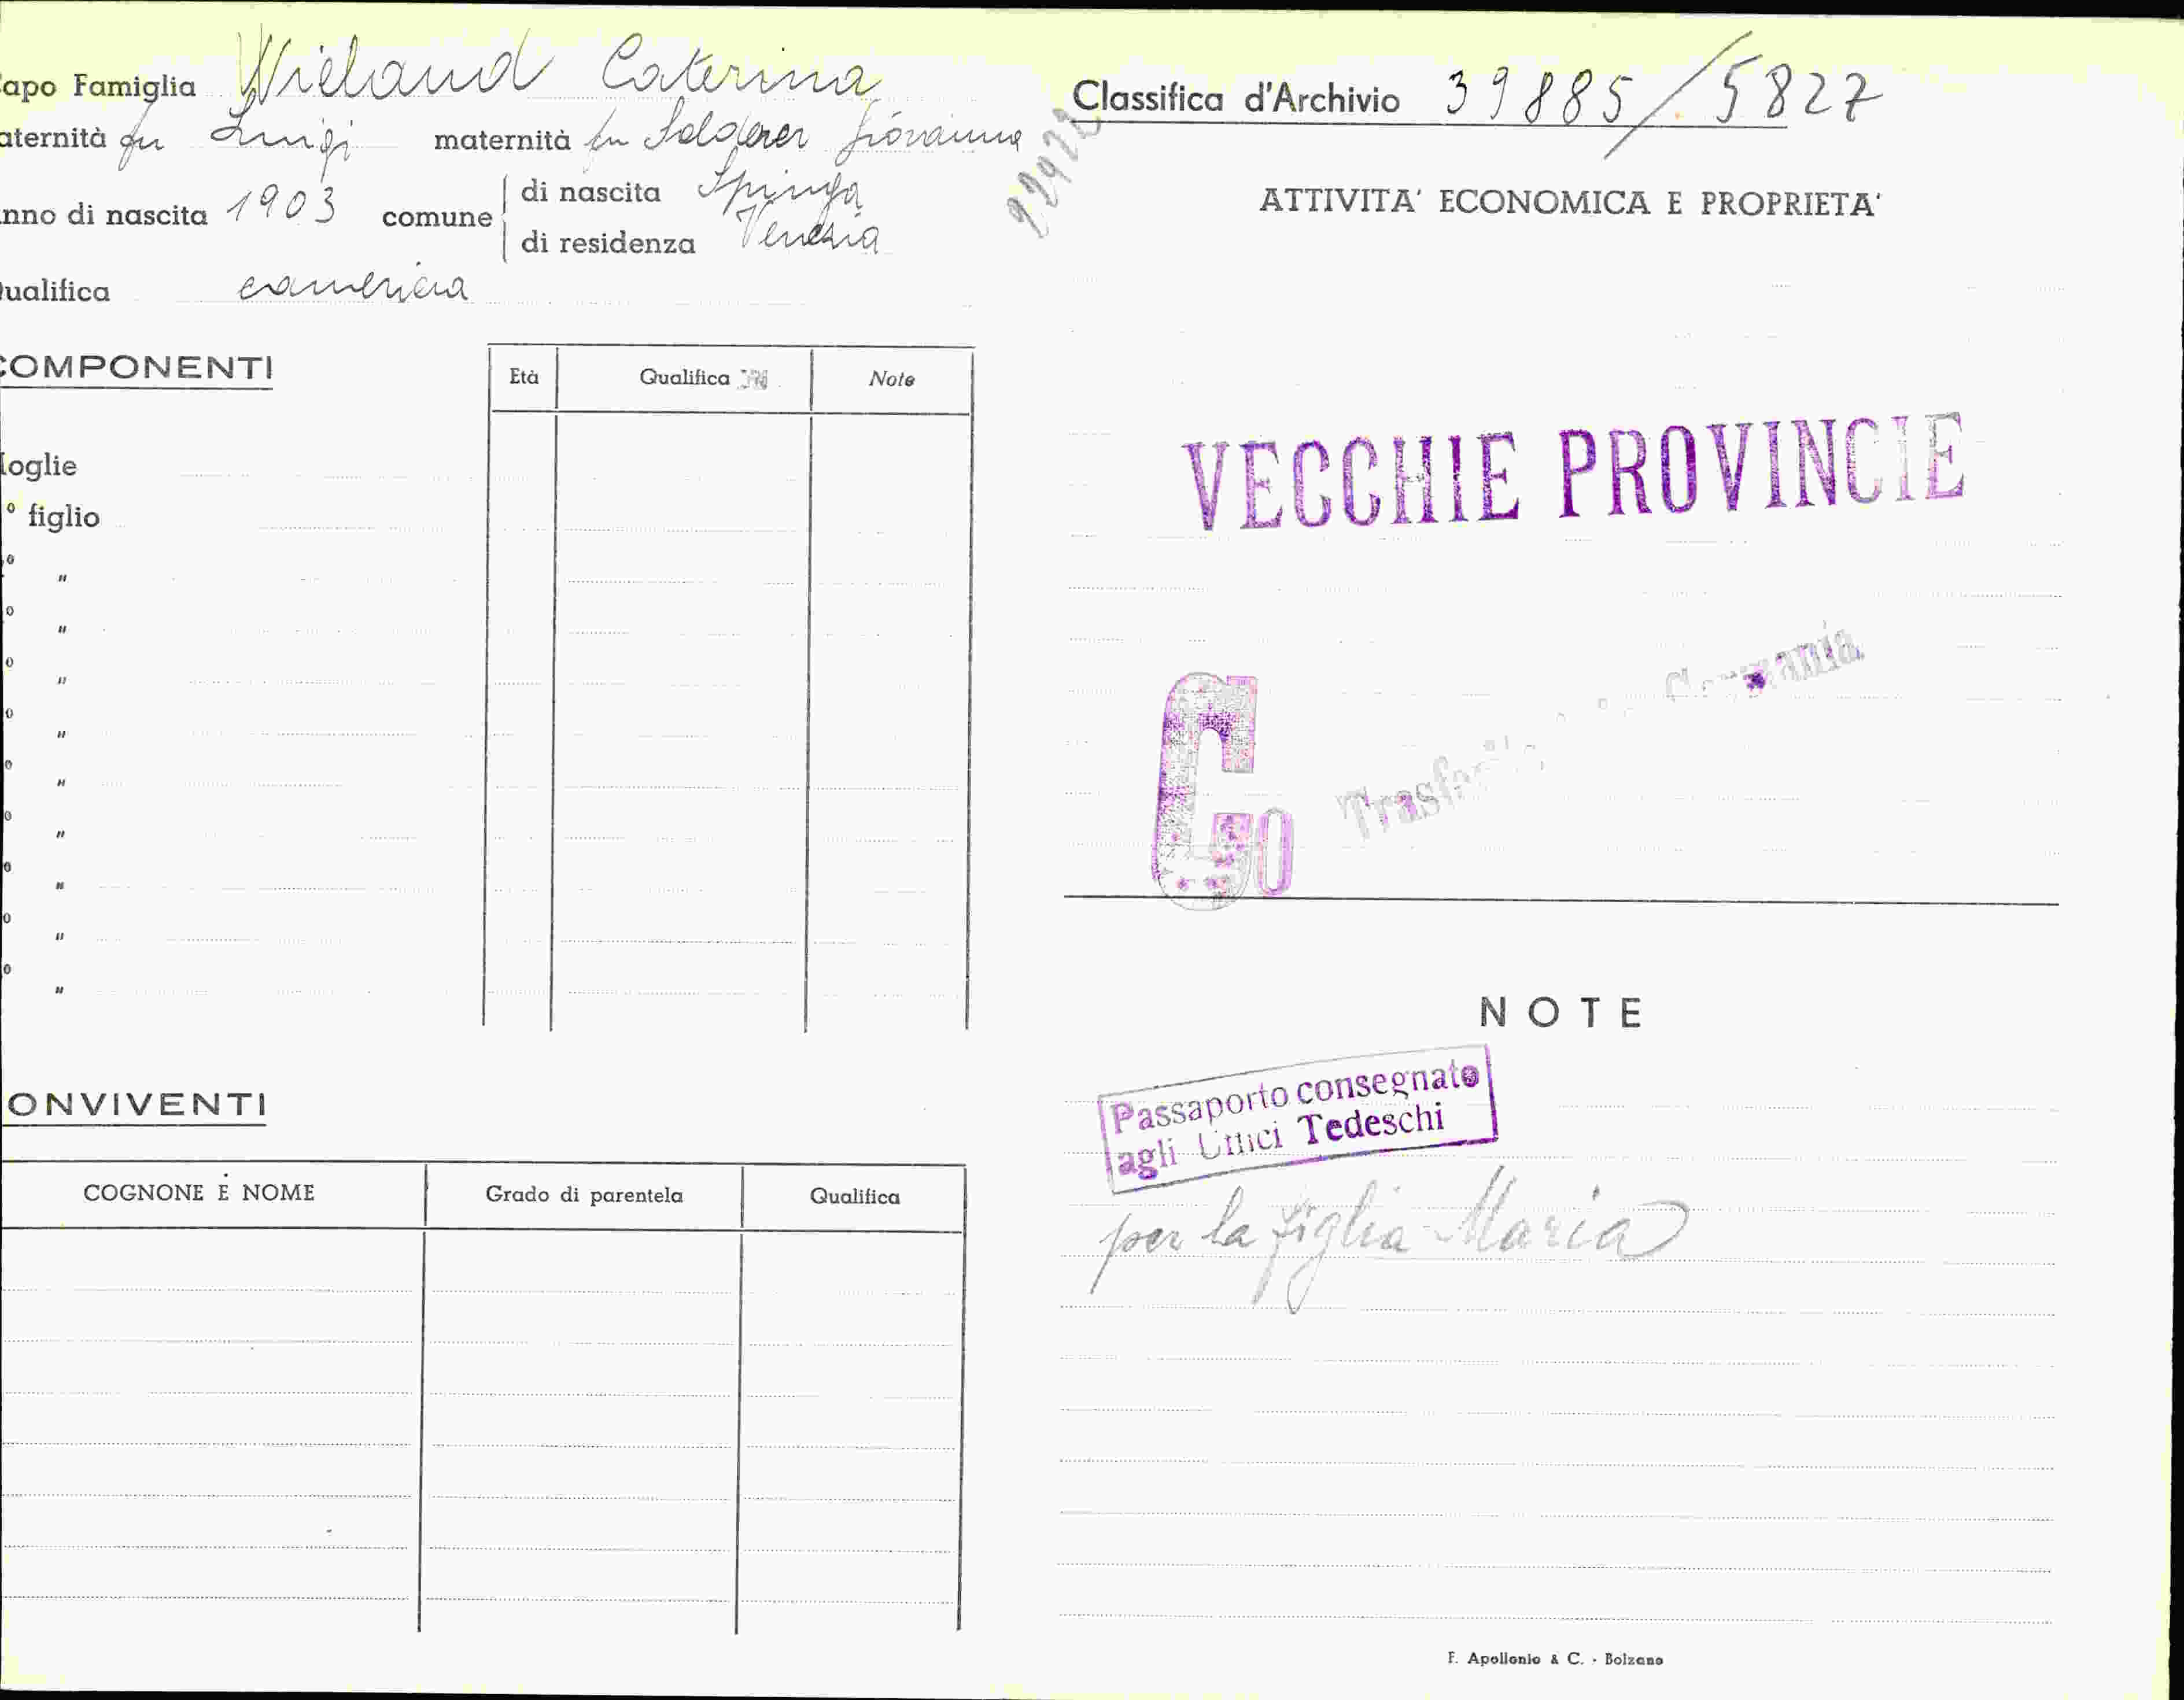 apo Famiglia Wieland Caterina
aternità fu Luigi maternità fu Solderer Giovanna
nno di nascita 1903 comune di nascita Spinga
di residenza Venezia
ualifica cameriera
COMPONENTI
Età Qualifica Note
oglie
° figlio
o "
o "
o "
o "
o "
o "
o "
o "
o "
ONVIVENTI
COGNONE E NOME Grado di parentela Qualifica
Classifica d'Archivio 39885/5827
ATTIVITA' ECONOMICA E PROPRIETA'
VECCHIE PROVINCIE
G
Germania
NOTE
Passaporto consegnato
agli Uffici Tedeschi
per la figlia Maria
F. Apollonio & C. - Bolzano